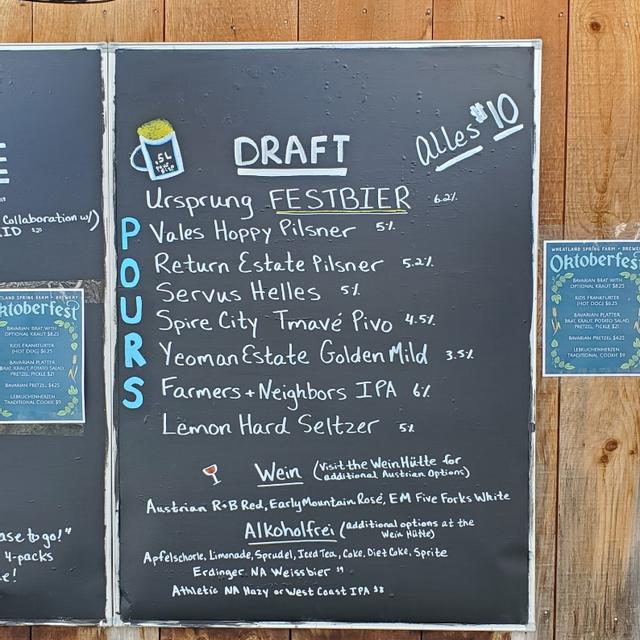 E
Collaboration w/)
ID
TLAND SPRING FARM + BREWERY
ktoberfest
BAVARIAN BRAT WITH
OPTIONAL KRAUT $8.25
KIDS FRANKFURTER
(HOT DOG) $6.25
BAVARIAN PLATTER
BRAT, KRAUT, POTATO SALAD,
PRETZEL, PICKLE $21
BAVARIAN PRETZEL $4.25
LEBKUCHENHERZEN
TRADITIONAL COOKIE $9
ase to go!"
4-packs
e!
.5L
DRAFT
Alles $10
POURS
Ursprung FESTBIER 6.2%
Vales Hoppy Pilsner 5%
Return Estate Pilsner 5.2%
Servus Helles 5%
Spire City Tmavé Pivo 4.5%
Yeoman Estate Golden Mild 3.5%
Farmers + Neighbors IPA 6%
Lemon Hard Seltzer 5%
Wein (Visit the Wein Hütte for
additional Austrian Options)
Austrian R+B Red, Early Mountain Rosé, EM Five Forks White
Alkoholfrei (additional options at the
Wein Hütte)
Apfelschorle, Limonade, Sprudel, Iced Tea, Coke, Diet Coke, Sprite
Erdinger NA Weissbier
Athletic NA Hazy or West Coast IPA $8
WHEATLAND SPRING FARM + BREWE
Oktoberfest
BAVARIAN BRAT WITH
OPTIONAL KRAUT $8.25
KIDS FRANKFURTER
(HOT DOG) $6.25
BAVARIAN PLATTER
BRAT, KRAUT, POTATO SALAD,
PRETZEL, PICKLE $21
BAVARIAN PRETZEL $4.25
LEBKUCHENHERZEN
TRADITIONAL COOKIE $9